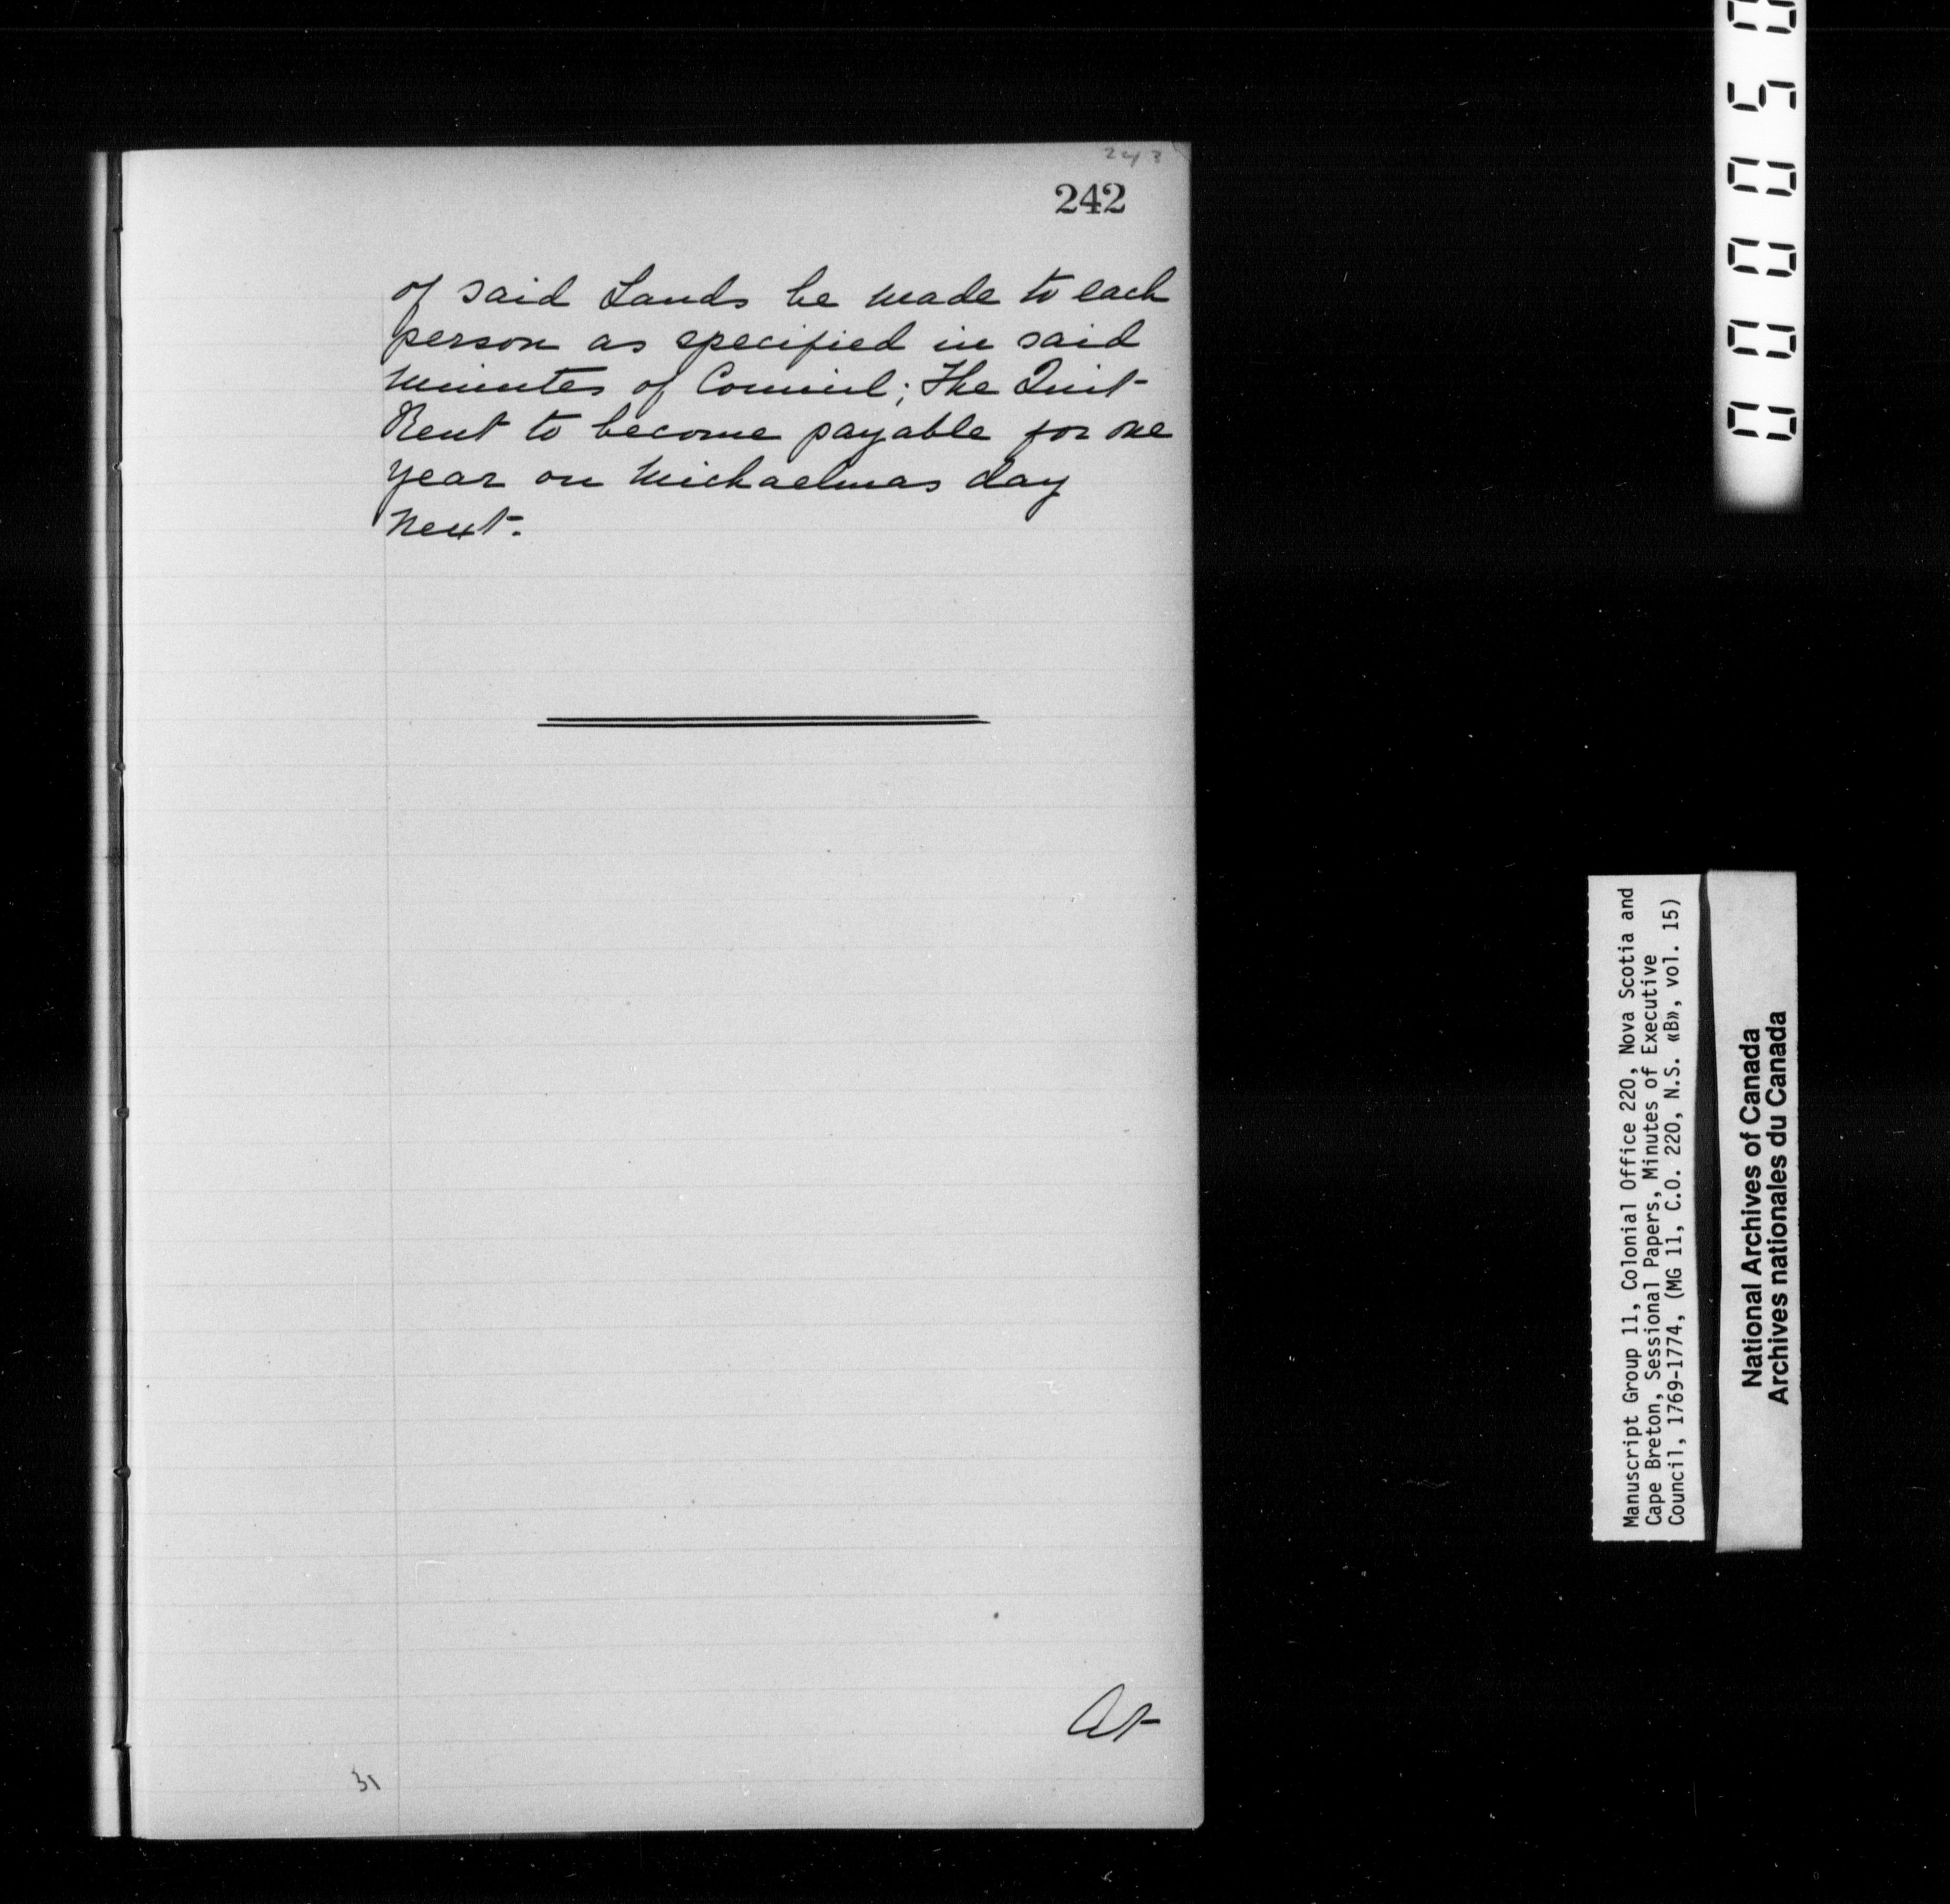 243
242
of said Lands be made to each
person as specified in said
Minutes of Council; The Quit-
Rent to become payable for one
year on Michaelmas day
Next.
At
31
000050
Manuscript Group 11, Colonial Office 220, Nova Scotia and
Cape Breton, Sessional Papers, Minutes of Executive
Council, 1769-1774, (MG 11, C.O. 220, N.S. «B», vol. 15)
National Archives of Canada
Archives nationales du Canada